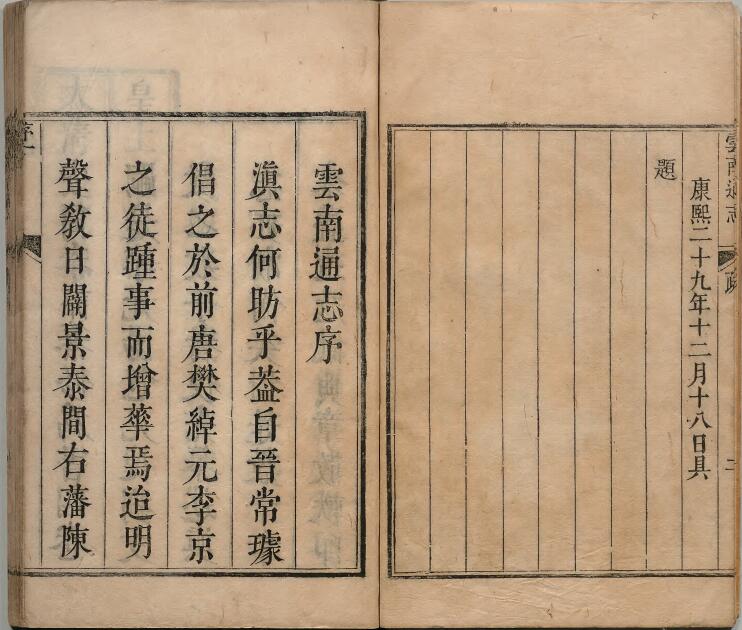 雲南通志
康熙二十九年十二月十八日具
題
雲南通志序
滇志何昉乎葢自晉常璩
倡之於前唐樊綽元李京
之徒踵事而增蕐焉迨明
聲敎日闢景泰間右藩陳